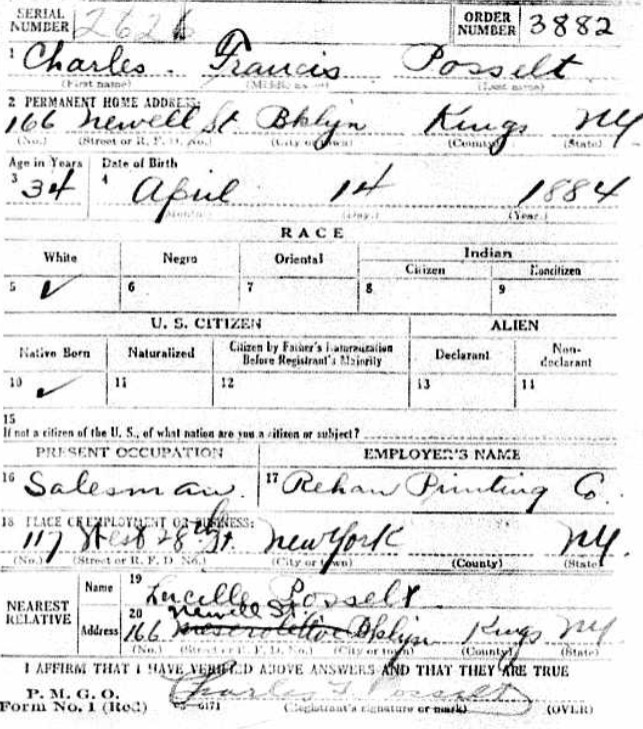 SERIAL NUMBER 2626 ORDER NUMBER 3882
1 Charles Francis Posselt
(First name) (Middle name) (Last name)
2 PERMANENT HOME ADDRESS:
166 Newell St Bklyn Kings NY
(No.) (Street or R. F. D. No.) (City or town) (County) (State)
Age in Years Date of Birth
3 34 4 April 14 1884
(Month.) (Day.) (Year.)
RACE
White Negro Oriental Indian
Citizen Noncitizen
5 ✓ 6 7 8 9
U. S. CITIZEN ALIEN
Native Born Naturalized Citizen by Father's Naturalization Before Registrant's Majority Declarant Non-declarant
10 ✓ 11 12 13 14
15
If not a citizen of the U. S., of what nation are you a citizen or subject?
PRESENT OCCUPATION EMPLOYER'S NAME
16 Salesman 17 Rehan Printing Co.
18 PLACE OF EMPLOYMENT OR BUSINESS:
117 West 28th St. New York NY.
(No.) (Street or R. F. D. No.) (City or town) (County) (State)
NEAREST RELATIVE Name 19 Lucille Posselt
20 Newell St
Address 166 Bklyn Kings NY
(No.) (Street or R. F. D. No.) (City or town) (County) (State)
I AFFIRM THAT I HAVE VERIFIED ABOVE ANSWERS AND THAT THEY ARE TRUE
P. M. G. O.
Form No. 1 (Red) Charles F. Posselt
(Registrant's signature or mark) (OVER)